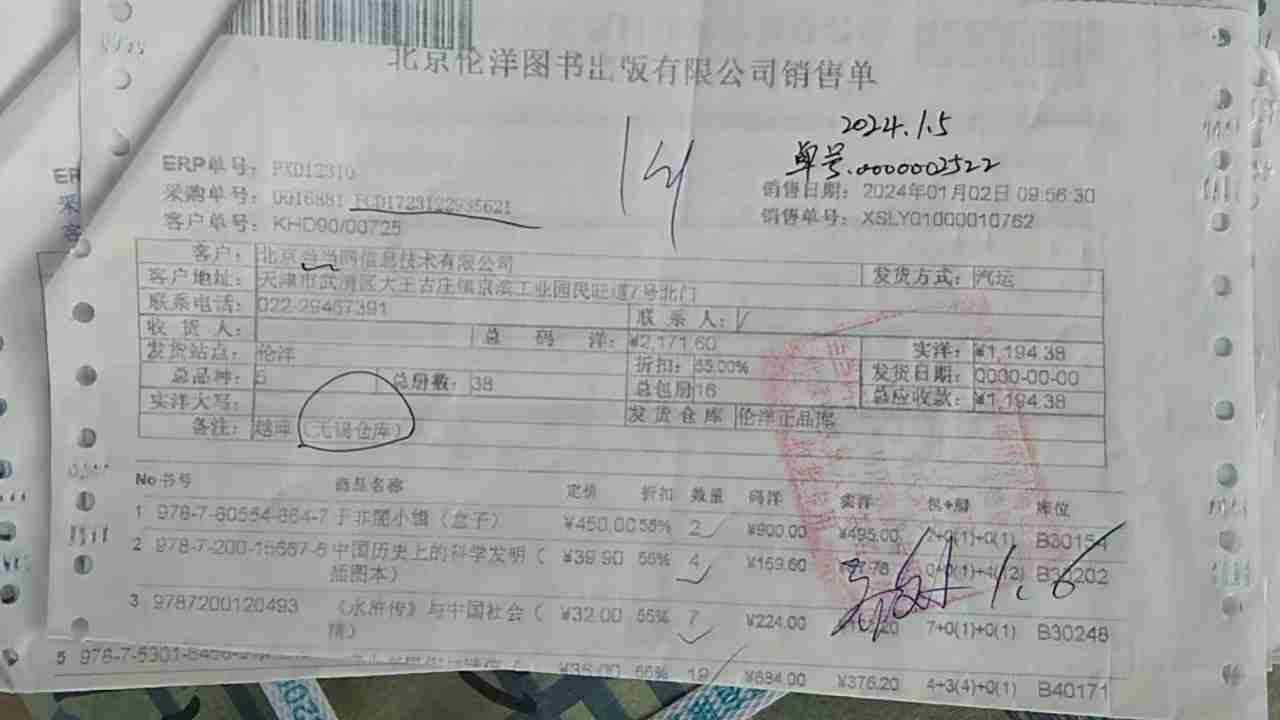 北京伦洋图书出版有限公司销售单
2024.1.5
单号.0000002522
14
ERP单号: PXD12310
采购单号: 0016881
销售日期: 2024年01月02日 09:56:30
客户单号: KHD90/00725
销售单号: XSLY01000010762
客户: 北京当当网信息技术有限公司 发货方式: 汽运
客户地址: 天津市武清区大王古庄镇京滨工业园民旺道7号北门
联系电话: 022-29467391 联系人:
收货人: 总码洋: ¥2,171.60 实洋: ¥1,194.38
发货站点: 伦洋 折扣: 55.00% 发货日期: 0000-00-00
总品种: 6 总册数: 38 总包册 16 总应收款: ¥1,194.38
实洋大写: 发货仓库 伦洋正品库
备注: 越库 (无锡仓库)
No 书号 商品名称 定价 折扣 数量 码洋 实洋 包+册 库位
1 978-7-80554-664-7 于非闇小辑(盒子) ¥450.00 55% 2 ¥900.00 ¥495.00 B30154
2 978-7-200-15667-6 中国历史上的科学发明( ¥39.90 55% 4 ¥159.60 B30202
插图本)
3 9787200120493 《水浒传》与中国社会( ¥32.00 55% 7 ¥224.00 7+0(1)+0(1) B30248
情)
1.6
5 ¥36.00 55% 19 ¥684.00 ¥376.20 4+3(4)+0(1) B40171